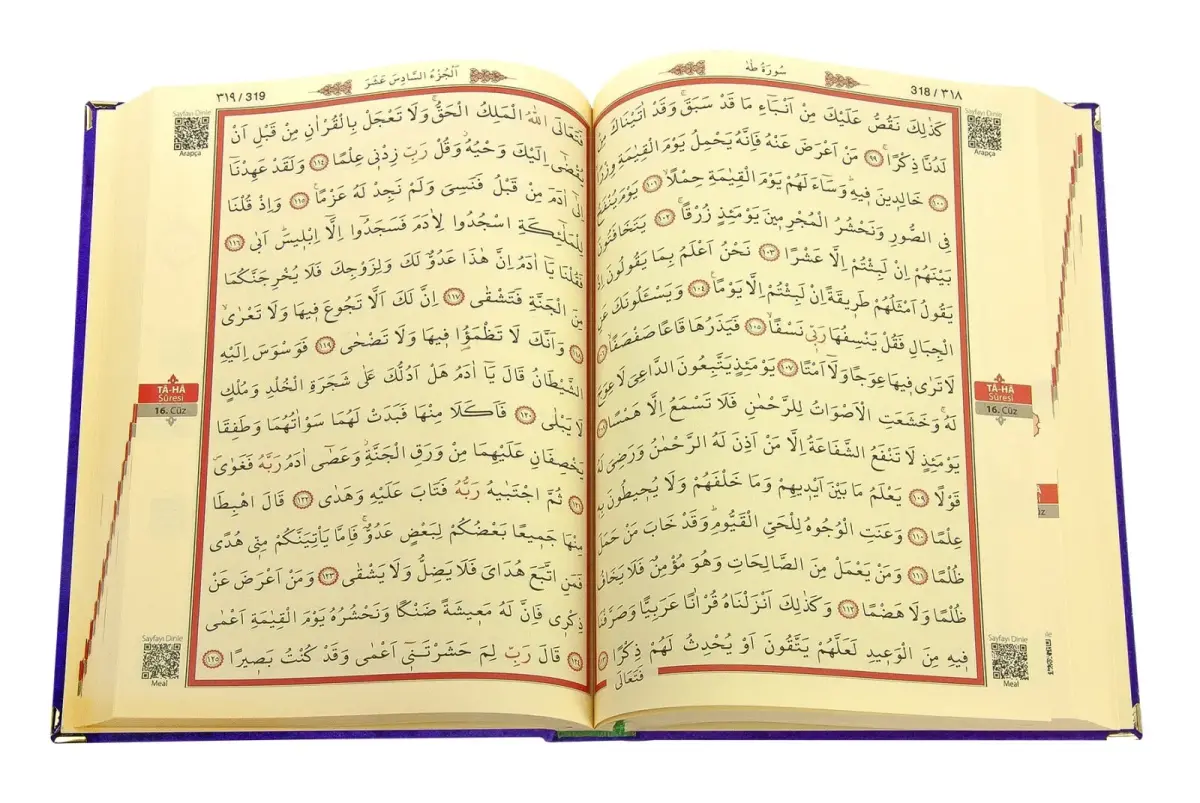 سُورَةُ طٰهٰ
318 / ٣١٨
Sayfayı Dinle
Arapça
كَذٰلِكَ نَقُصُّ عَلَيْكَ مِنْ اَنْبَٓاءِ مَا قَدْ سَبَقَۚ وَقَدْ اٰتَيْنَاكَ مِنْ
لَدُنَّا ذِكْرًاۚ ٩٩ مَنْ اَعْرَضَ عَنْهُ فَاِنَّهُ يَحْمِلُ يَوْمَ الْقِيٰمَةِ وِزْرًاۙ
١٠٠ خَالِدٖينَ فٖيهِۜ وَسَٓاءَ لَهُمْ يَوْمَ الْقِيٰمَةِ حِمْلًاۙ ١٠١ يَوْمَ يُنْفَخُ
فِي الصُّورِ وَنَحْشُرُ الْمُجْرِمٖينَ يَوْمَئِذٍ زُرْقًاۚ ١٠٢ يَتَخَافَتُونَ
بَيْنَهُمْ اِنْ لَبِثْتُمْ اِلَّا عَشْرًا ١٠٣ نَحْنُ اَعْلَمُ بِمَا يَقُولُونَ اِذْ
يَقُولُ اَمْثَلُهُمْ طَرٖيقَةً اِنْ لَبِثْتُمْ اِلَّا يَوْمًا۟ ١٠٤ وَيَسْـَٔلُونَكَ عَنِ
الْجِبَالِ فَقُلْ يَنْسِفُهَا رَبّٖي نَسْفًاۙ ١٠٥ فَيَذَرُهَا قَاعًا صَفْصَفًاۙ
لَا تَرٰى فٖيهَا عِوَجًا وَلَٓا اَمْتًاۜ ١٠٧ يَوْمَئِذٍ يَتَّبِعُونَ الدَّاعِيَ لَا عِوَجَ
لَهُۚ وَخَشَعَتِ الْاَصْوَاتُ لِلرَّحْمٰنِ فَلَا تَسْمَعُ اِلَّا هَمْسًا
يَوْمَئِذٍ لَا تَنْفَعُ الشَّفَاعَةُ اِلَّا مَنْ اَذِنَ لَهُ الرَّحْمٰنُ وَرَضِيَ لَهُ
قَوْلًا ١٠٩ يَعْلَمُ مَا بَيْنَ اَيْدٖيهِمْ وَمَا خَلْفَهُمْ وَلَا يُحٖيطُونَ بِهٖ
عِلْمًا ١١٠ وَعَنَتِ الْوُجُوهُ لِلْحَيِّ الْقَيُّومِۜ وَقَدْ خَابَ مَنْ حَمَلَ
ظُلْمًا ١١١ وَمَنْ يَعْمَلْ مِنَ الصَّالِحَاتِ وَهُوَ مُؤْمِنٌ فَلَا يَخَافُ
ظُلْمًا وَلَا هَضْمًا ١١٢ وَكَذٰلِكَ اَنْزَلْنَاهُ قُرْاٰنًا عَرَبِيًّا وَصَرَّفْنَا
فٖيهِ مِنَ الْوَعٖيدِ لَعَلَّهُمْ يَتَّقُونَ اَوْ يُحْدِثُ لَهُمْ ذِكْرًا
فَتَعَالَى
TÂ-HÂ
Sûresi
16. Cüz
Sayfayı Dinle
Meal
اَلْجُزْءُ السَّادِسَ عَشَرَ
٣١٩ / 319
Sayfayı Dinle
Arapça
فَتَعَالَى اللّٰهُ الْمَلِكُ الْحَقُّۚ وَلَا تَعْجَلْ بِالْقُرْاٰنِ مِنْ قَبْلِ اَنْ
يُقْضٰٓى اِلَيْكَ وَحْيُهُۘ وَقُلْ رَبِّ زِدْنٖي عِلْمًا ١١٤ وَلَقَدْ عَهِدْنَٓا
اِلٰٓى اٰدَمَ مِنْ قَبْلُ فَنَسِيَ وَلَمْ نَجِدْ لَهُ عَزْمًا۟ ١١٥ وَاِذْ قُلْنَا
لِلْمَلٰٓئِكَةِ اسْجُدُوا لِاٰدَمَ فَسَجَدُٓوا اِلَّٓا اِبْلٖيسَۜ اَبٰى ١١٦
فَقُلْنَا يَٓا اٰدَمُ اِنَّ هٰذَا عَدُوٌّ لَكَ وَلِزَوْجِكَ فَلَا يُخْرِجَنَّكُمَا
مِنَ الْجَنَّةِ فَتَشْقٰى ١١٧ اِنَّ لَكَ اَلَّا تَجُوعَ فٖيهَا وَلَا تَعْرٰىۙ
١١٨ وَاَنَّكَ لَا تَظْمَؤُ۬ا فٖيهَا وَلَا تَضْحٰى ١١٩ فَوَسْوَسَ اِلَيْهِ
الشَّيْطَانُ قَالَ يَٓا اٰدَمُ هَلْ اَدُلُّكَ عَلٰى شَجَرَةِ الْخُلْدِ وَمُلْكٍ
لَا يَبْلٰى ١٢٠ فَاَكَلَا مِنْهَا فَبَدَتْ لَهُمَا سَوْاٰتُهُمَا وَطَفِقَا
يَخْصِفَانِ عَلَيْهِمَا مِنْ وَرَقِ الْجَنَّةِۘ وَعَصٰٓى اٰدَمُ رَبَّهُ فَغَوٰىۖ
١٢١ ثُمَّ اجْتَبٰيهُ رَبُّهُ فَتَابَ عَلَيْهِ وَهَدٰى ١٢٢ قَالَ اهْبِطَا
مِنْهَا جَمٖيعًا بَعْضُكُمْ لِبَعْضٍ عَدُوٌّۚ فَاِمَّا يَأْتِيَنَّكُمْ مِنّٖي هُدًى
فَمَنِ اتَّبَعَ هُدَايَ فَلَا يَضِلُّ وَلَا يَشْقٰى ١٢٣ وَمَنْ اَعْرَضَ عَنْ
ذِكْرٖي فَاِنَّ لَهُ مَعٖيشَةً ضَنْكًا وَنَحْشُرُهُ يَوْمَ الْقِيٰمَةِ اَعْمٰى
١٢٤ قَالَ رَبِّ لِمَ حَشَرْتَنٖٓي اَعْمٰى وَقَدْ كُنْتُ بَصٖيرًا ١٢٥
TÂ-HÂ
Sûresi
16. Cüz
Sayfayı Dinle
Meal